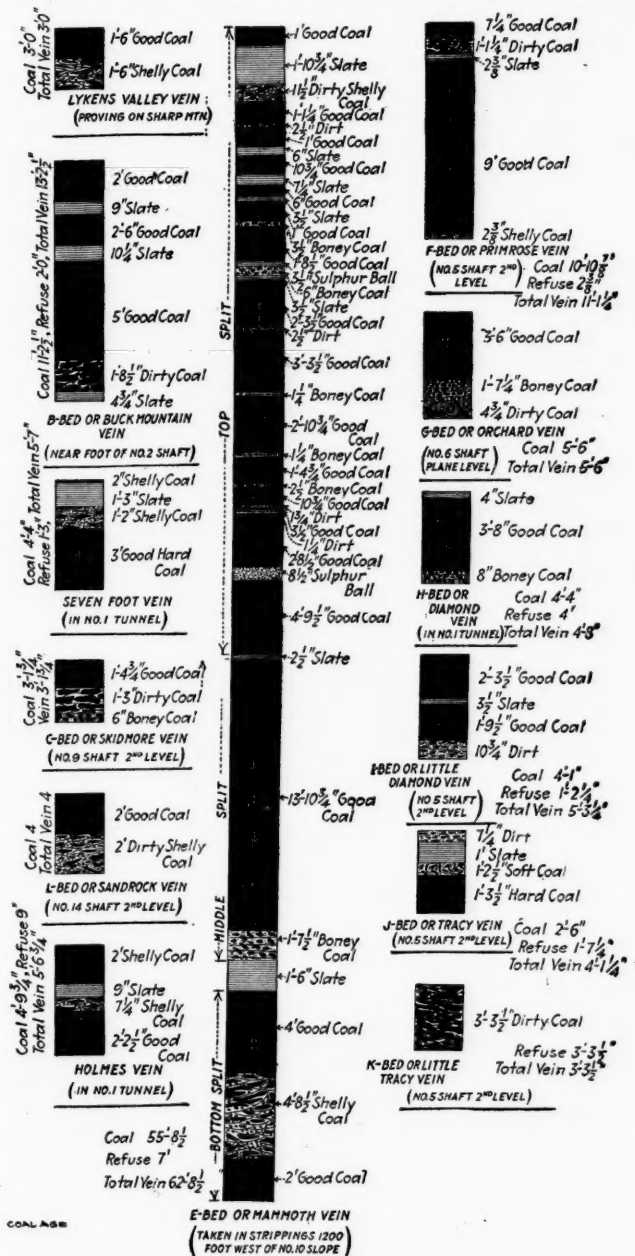 Coal 3'-0"
Total Vein 3'-0"
1'-6" Good Coal
1'-6" Shelly Coal
LYKENS VALLEY VEIN
(PROVING ON SHARP MTN.)
Coal 11'-2½", Refuse 2'-0", Total Vein 13'-2½"
2' Good Coal
9" Slate
2'-6" Good Coal
10¼" Slate
5' Good Coal
1'-8½" Dirty Coal
4¾" Slate
B-BED OR BUCK MOUNTAIN
VEIN
(NEAR FOOT OF NO.2 SHAFT)
Coal 4'-4", Total Vein 5'-7"
Refuse 1'-3"
2" Shelly Coal
1'-3" Slate
1'-2" Shelly Coal
3' Good Hard
Coal
SEVEN FOOT VEIN
(IN NO.1 TUNNEL)
Coal 3'-1¾"
Vein 3'-1¾"
1'-4¾" Good Coal
1'-3" Dirty Coal
6" Boney Coal
C-BED OR SKIDMORE VEIN
(NO.9 SHAFT 2ND LEVEL)
Coal 4
Total Vein 4
2' Good Coal
2' Dirty Shelly
Coal
L-BED OR SANDROCK VEIN
(NO.14 SHAFT 2ND LEVEL)
Coal 4'-9¾", Refuse 9"
Total Vein 5'-6¾"
2' Shelly Coal
9" Slate
7¼" Shelly
Coal
2'-2½" Good
Coal
HOLMES VEIN
(IN NO.1 TUNNEL)
Coal 55'-8½
Refuse 7'
Total Vein 62'-8½"
COAL AGE
TOP SPLIT
MIDDLE SPLIT
BOTTOM SPLIT
1' Good Coal
1'-10¾" Slate
11½" Dirty Shelly
Coal
1'-1¼" Good Coal
2½" Dirt
1' Good Coal
6" Slate
10¾ Good Coal
7¼" Slate
6" Good Coal
5½" Slate
1" Good Coal
3½" Boney Coal
1'-8½" Good Coal
3½" Sulphur Ball
6" Boney Coal
3½" Slate
2'-3½" Good Coal
2½" Dirt
3'-3½" Good Coal
1¼" Boney Coal
2'-10¾" Good
Coal
1¼" Boney Coal
1'-4¾" Good Coal
2½" Boney Coal
10¾" Good Coal
1¾" Dirt
3½" Good Coal
¼" Dirt
2'-8½" Good Coal
8½" Sulphur
Ball
4'-9½" Good Coal
2½" Slate
13'-10¾" Good
Coal
1'-7½" Boney
Coal
1'-6" Slate
4' Good Coal
4'-8½" Shelly
Coal
2' Good Coal
E-BED OR MAMMOTH VEIN
(TAKEN IN STRIPPINGS 1200
FOOT WEST OF NO.10 SLOPE)
7¼" Good Coal
1'-1¼" Dirty Coal
2⅜" Slate
9' Good Coal
2⅜" Shelly Coal
F-BED OR PRIMROSE VEIN
(NO.5 SHAFT 2ND
LEVEL)
Coal 10'-10⅞"
Refuse 2⅜"
Total Vein 11'-1¼"
3'-6" Good Coal
1'-7¼" Boney Coal
4¾" Dirty Coal
G-BED OR ORCHARD VEIN
(NO.6 SHAFT
PLANE LEVEL)
Coal 5'-6"
Total Vein 5'-6"
4" Slate
3'-8" Good Coal
8" Boney Coal
H-BED OR
DIAMOND
VEIN
(IN NO.1 TUNNEL)
Coal 4'-4"
Refuse 4"
Total Vein 4'-8"
2'-3½" Good Coal
3½" Slate
1'-9½" Good Coal
10¾" Dirt
I-BED OR LITTLE
DIAMOND VEIN
(NO.5 SHAFT
2ND LEVEL)
Coal 4'-1"
Refuse 1'-2¼"
Total Vein 5'-3¼"
7¼" Dirt
1' Slate
1'-2½" Soft Coal
1'-3½" Hard Coal
J-BED OR TRACY VEIN
(NO.5 SHAFT 2ND LEVEL)
Coal 2'-6"
Refuse 1'-7¼"
Total Vein 4'-1¼"
3'-3½" Dirty Coal
K-BED OR LITTLE
TRACY VEIN
(NO.5 SHAFT 2ND LEVEL)
Refuse 3'-3½"
Total Vein 3'-3½"